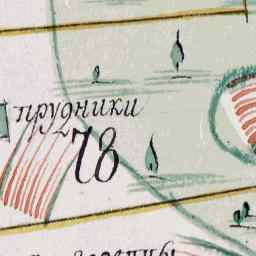 прудники
78